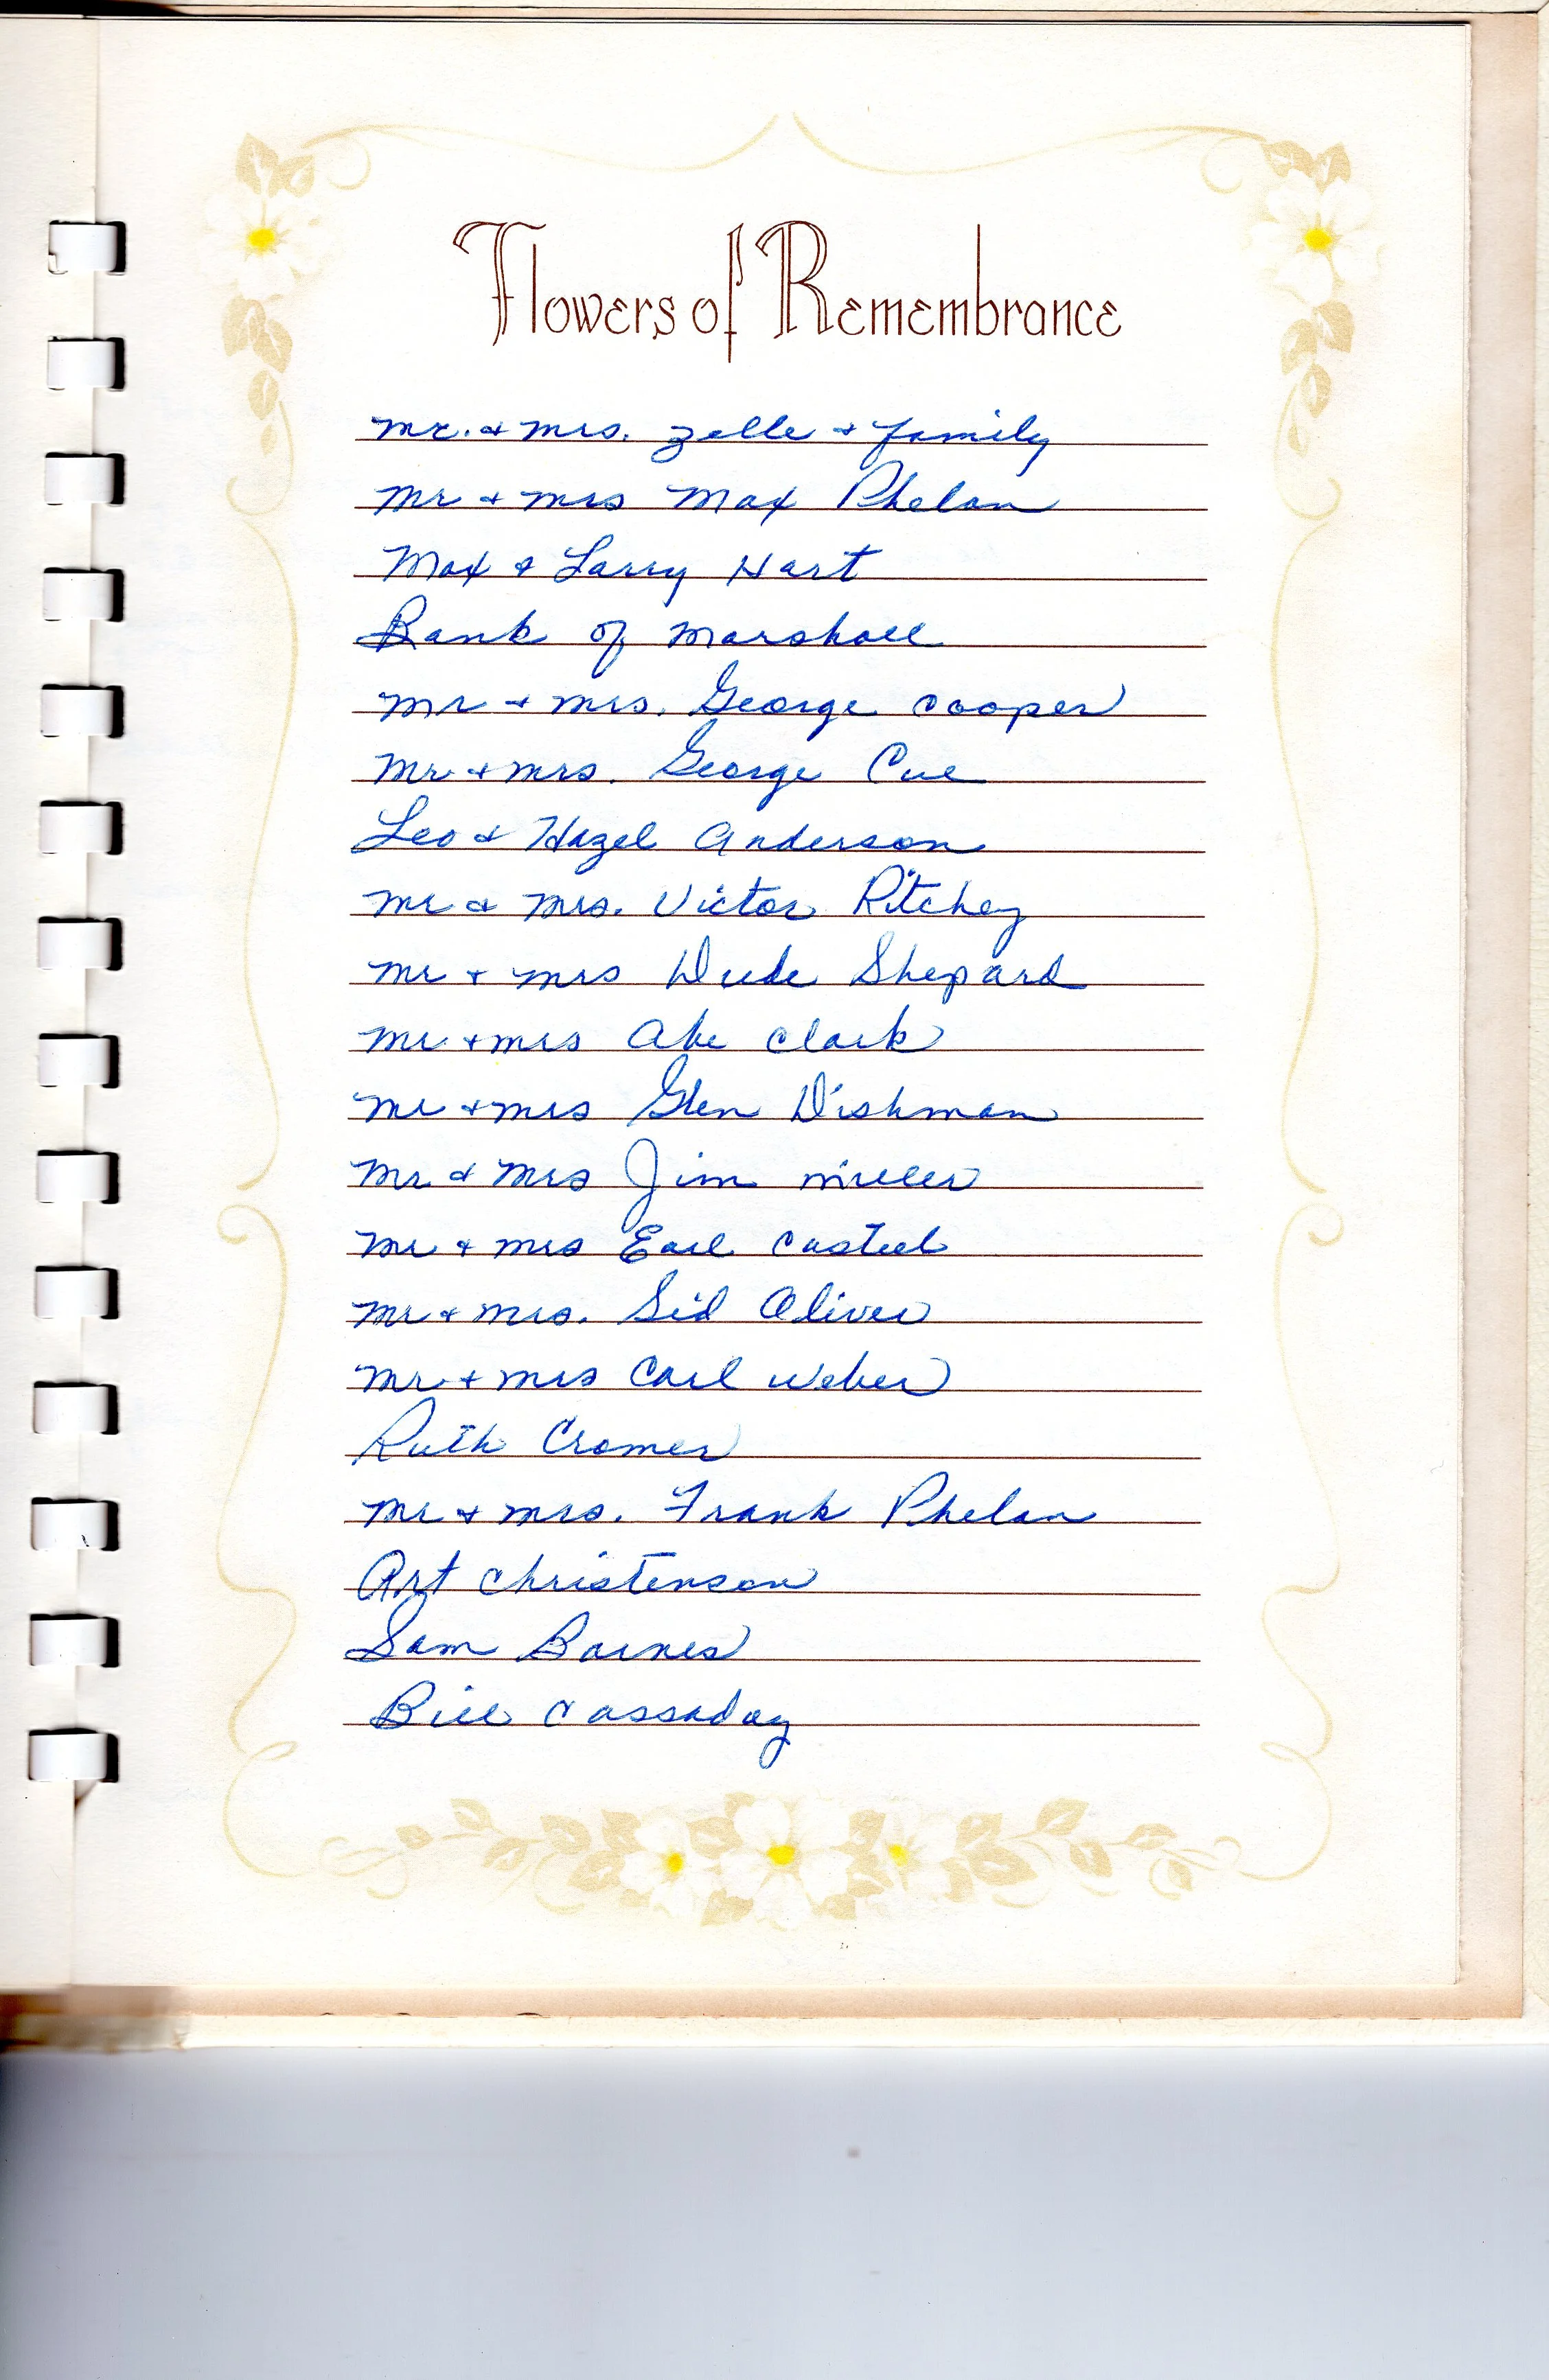 Flowers of Remembrance
Mr. & Mrs. Zelle & family
Mr & Mrs Max Phelan
Max & Larry Hart
Bank of Marshall
Mr & Mrs. George Cooper
Mr & Mrs. George Cue
Leo & Hazel Anderson
Mr & Mrs. Victor Ritchey
Mr & Mrs Dude Shepard
Mr & Mrs Abe Clark
Mr & Mrs Glen Dishman
Mr & Mrs Jim Miller
Mr & Mrs Earl Casteel
Mr & Mrs. Sid Oliver
Mr & Mrs Carl Weber
Ruth Cromer
Mr & Mrs. Frank Phelan
Art Christenson
Sam Barnes
Bill Cassaday